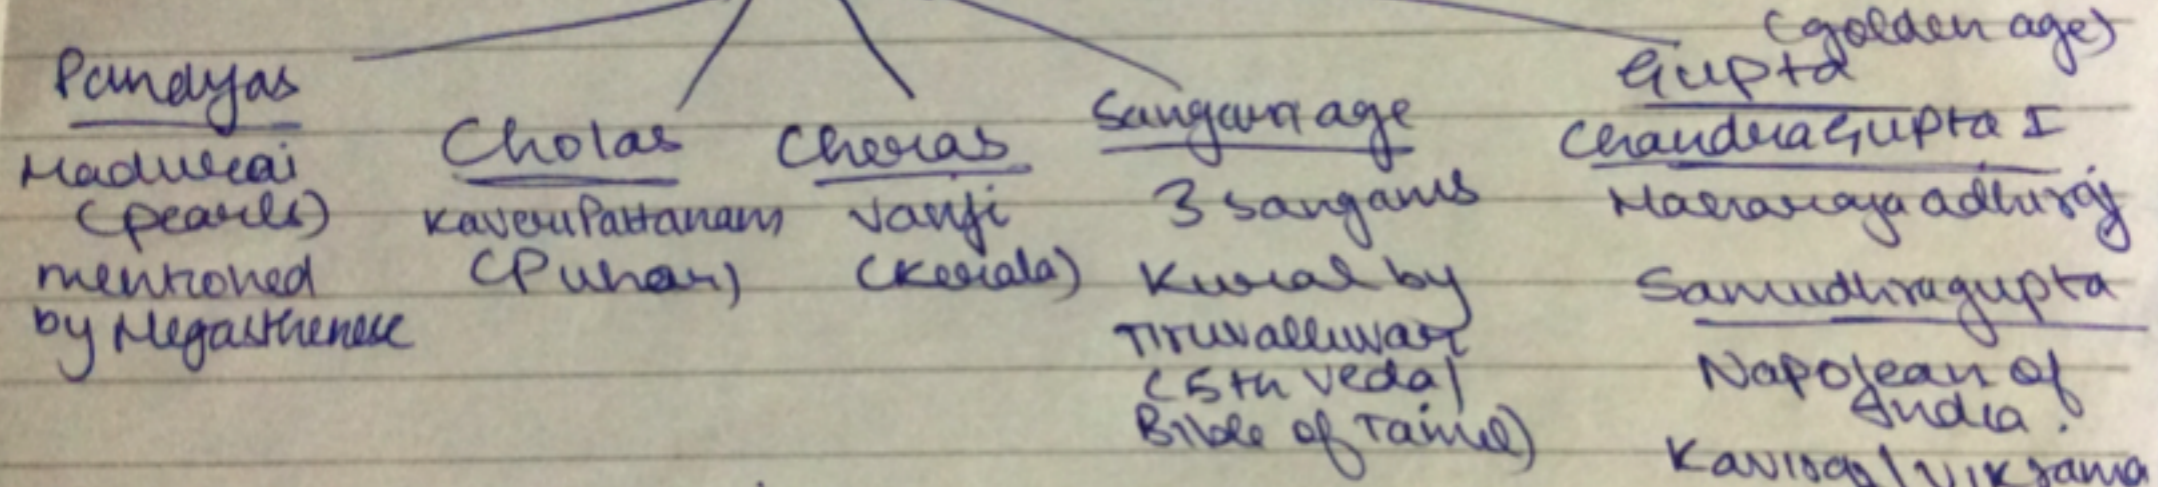 Pandyas
Madurai
(pearls)
mentioned
by Megasthenese
Cholas
Kaveripattanam
(Puhar)
Cheras
Vanji
(Kerala)
Sangam age
3 sangams
Kural by
Tiruvalluvar
(5th Veda/
Bible of Tamil)
(golden age)
Gupta
Chandragupta I
Maharaja adhiraj
Samudhragupta
Napolean of
India.
Kaviraj/Vikrama